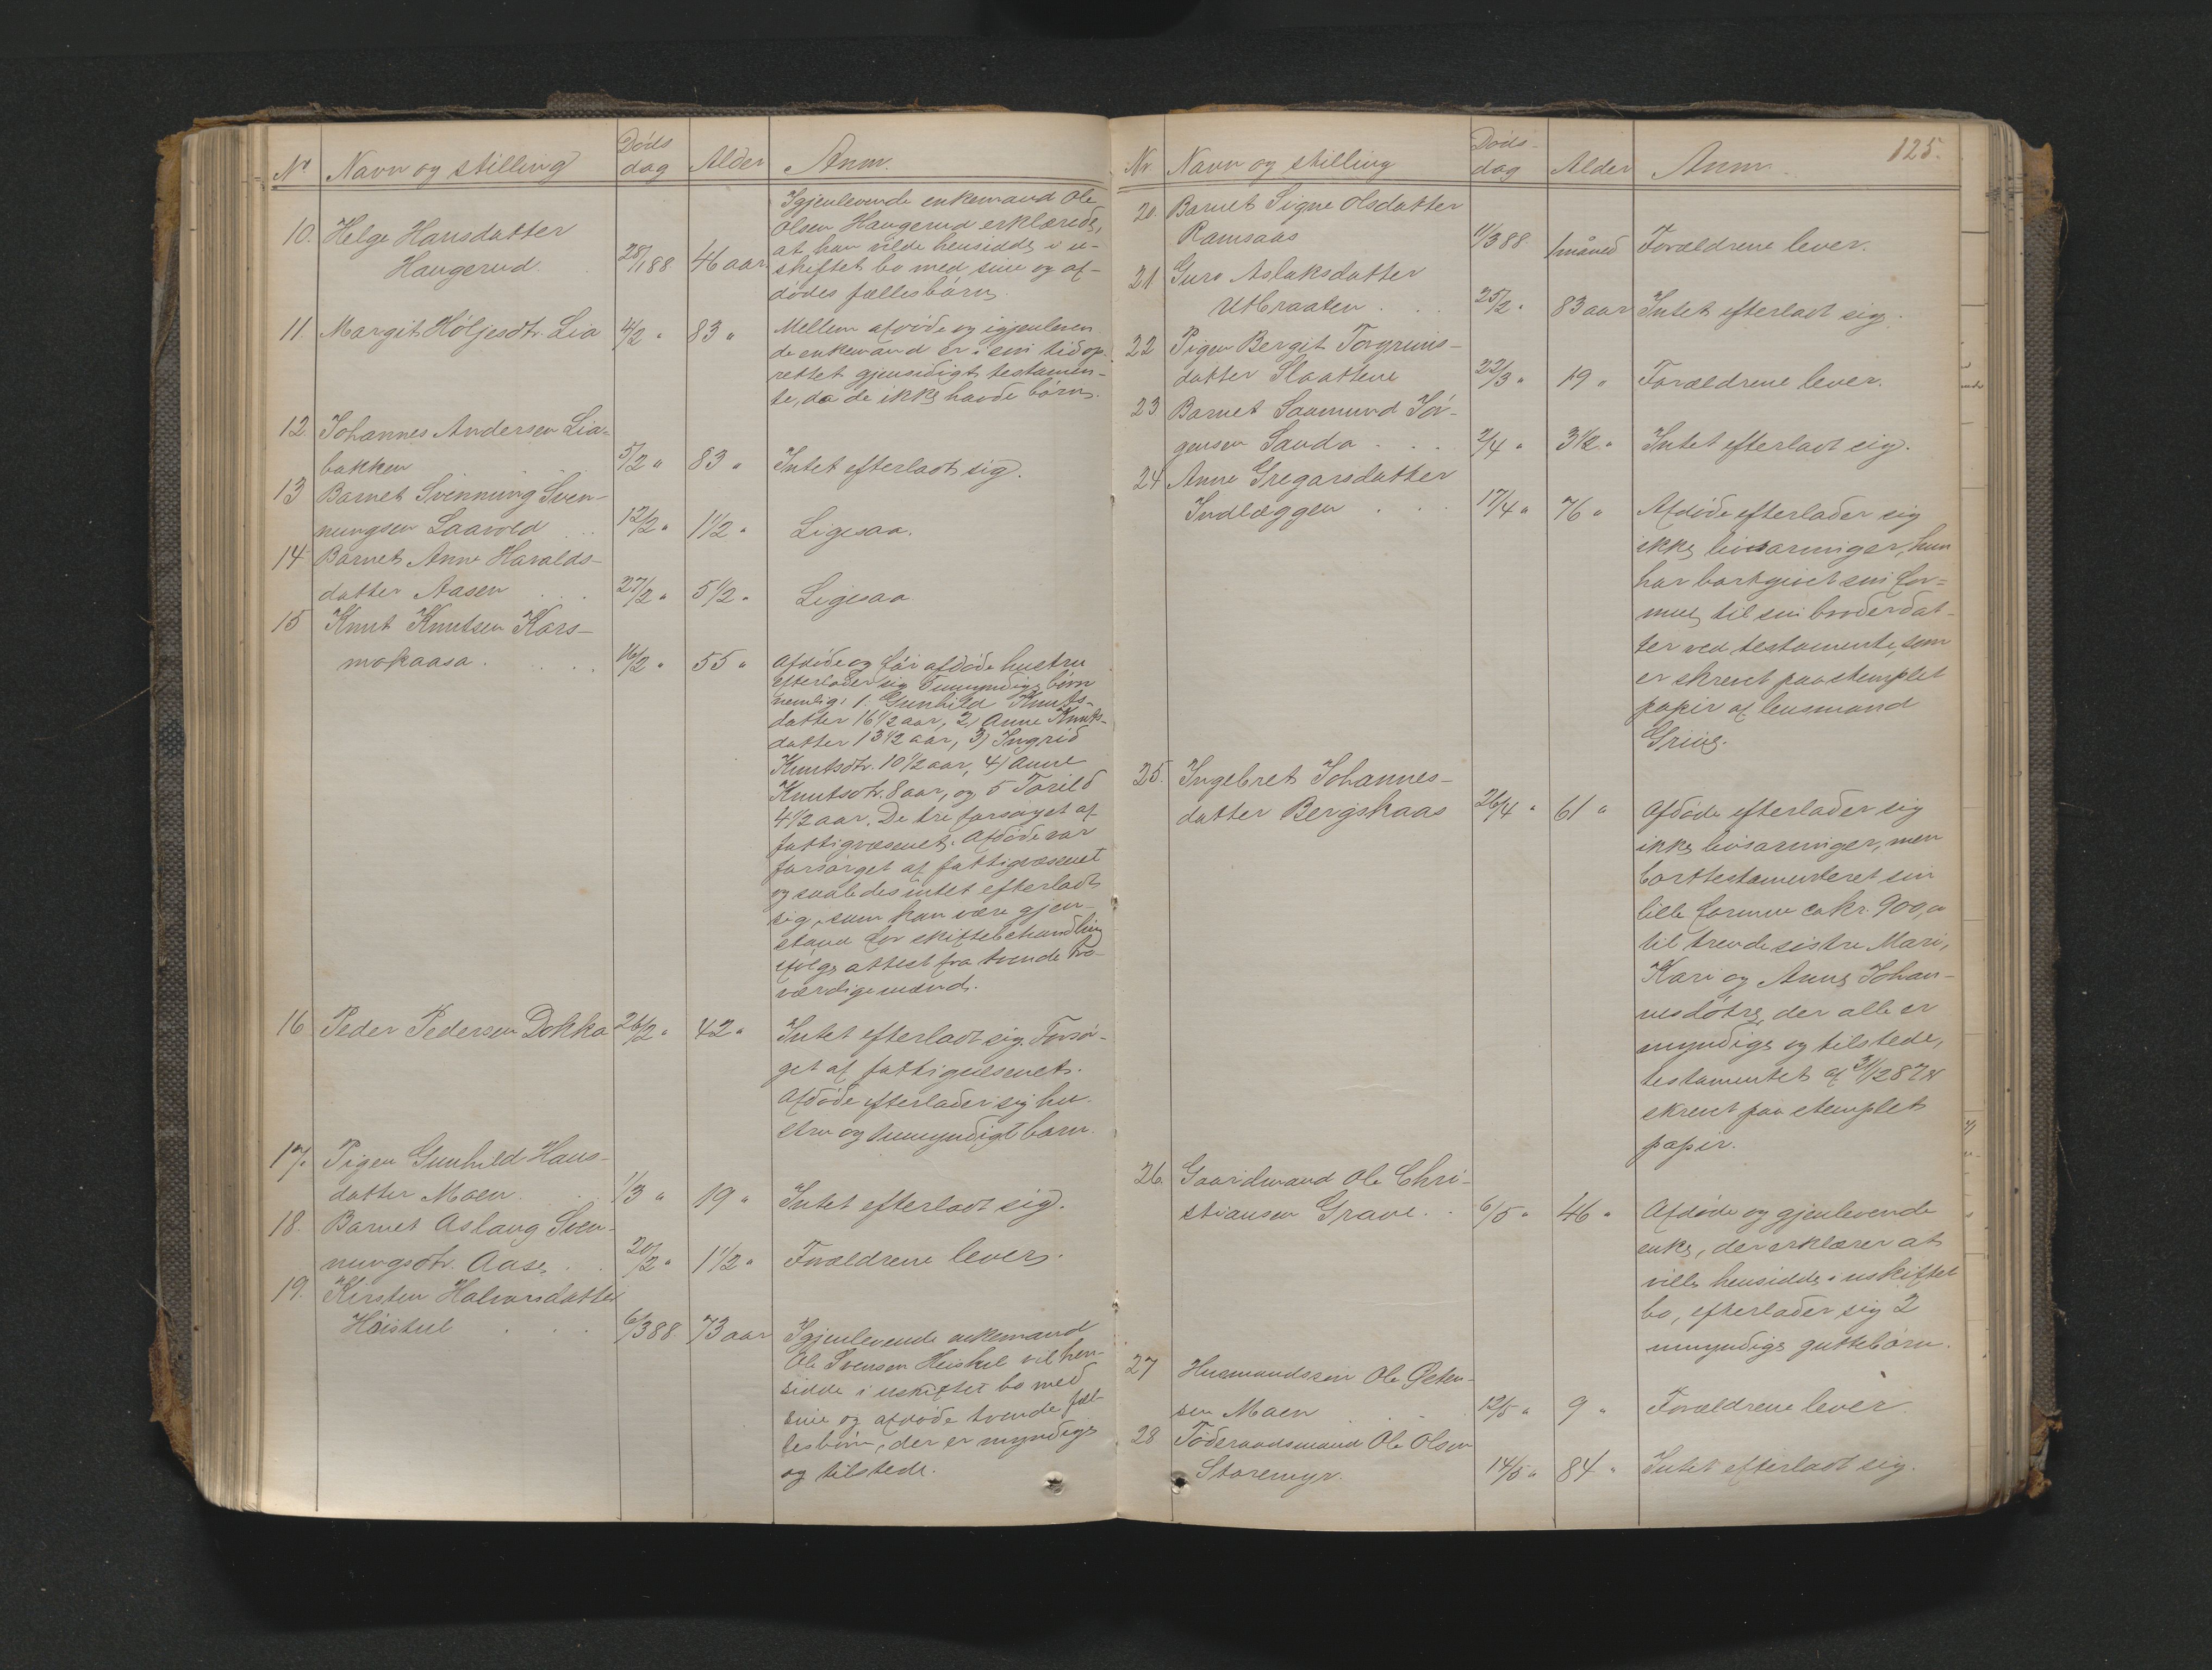 Nr Navn og stilling Døds dag Alder Anm.
10. Helge Hansdatter
Haugerud. 28/1 88 46 aar
Igjenlevende enkemand Ole
Olsen Haugerud erklærede,
at han vilde hensidde i u-
skiftet bo med sine og af-
dødes fællesbørn.
11. Margit Høljesdtr. Lia 4/2 " 83 "
Mellem afdøde og igjenleven
de enkemand er i sin tid op-
rettet gjensidigt testamen-
te, da de ikke havde børn.
12. Johannes Andersen Lia-
bakken 5/2 " 83 " Intet efterladt sig.
13 Barnet Svennung Sven-
nungsen Laavold . . 12/2 " 1 1/2 " Ligesaa.
14 Barnet Anne Haralds-
datter Aasen . . . 27/2 " 5 1/2 " Ligesaa
15 Knut Knutsen Kors-
mokaasa . . . . 16/2 " 55 "
Afdøde og før afdøde hustru
efterlader sig 5 umyndige børn
nemlig: 1. Gunhild Knuts-
datter 16 1/2 aar, 2) Anne Knuts-
datter 13 1/2 aar, 3) Ingrid
Knutsdtr. 10 1/2 aar, 4) Anne
Knutsdtr. 8 aar, og 5 Torild
4 1/2 aar. De tre forsørget af
fattigvæsenet. Afdøde var
forsørget af fattigvæsenet
og saaledes intet efterladt
sig, som kan være gjen-
stand for skiftebehandling
ifølge attest fra tvende tro-
værdige mænd.
16 Peder Pedersen Dokka 26/2 " 42 "
Intet efterladt sig. Forsør-
get af fattigvæsenet.
Afdøde efterlader sig hu-
stru og 1 umyndigt barn.
17. Pigen Gunhild Hans-
datter Moen. . 1/3 " 19 " Intet efterladt sig.
18. Barnet Aslaug Sven-
nungsdtr. Aase . . 20/2 " 1 1/2 " Forældrene lever.
19. Kirsten Halvorsdatter
Høistul . . . 6/3 88 73 aar
Igjenlevende enkemand
Ole Svensen Heistul vil hen-
sidde i uskiftet bo med
sine og afdøde tvende fæl-
lesbørn, der er myndige
og tilstede.
125.
Nr Navn og stilling Døds- dag Alder Anm.
20. Barnet Signe Olsdatter
Ramsaas 11/3 88 1 måned Forældrene lever.
21 Guro Aslaksdatter
Utbraaten . . . 25/2 " 83 aar Intet efterladt sig.
22 Pigen Bergit Torgrims-
datter Slaattene 22/3 " 19 " Forældrene lever.
23 Barnet Saamund Jør-
gensen Sauda . . . 2/4 " 3 1/2 " Intet efterladt sig.
24 Anne Gregarsdatter
Indlæggen . . . 17/4 " 76 "
Afdøde efterlader sig
ikke livsarvinger, hun
har bortgivet sin for-
mue til sin broderdat-
ter ved testamente, som
er skrevet paa stemplet
papir af lensmand
Grivi.
25. Ingebret Johannes-
datter Bergskaas 26/4 " 61 "
Afdøde efterlader sig
ikke livsarvinger, men
borttestamenteret sin
lille formue ca kr. 900,00
til trende søstre Mari,
Kari og Anne Johan-
nesdøtre, der alle er
myndige og tilstede,
testamentet af 31/12 87 er
skrevet paa stemplet
papir.
26. Gaardmand Ole Chri-
stiansen Grave. . 6/5 " 46 "
Afdøde og gjenlevende
enke, der erklærer at
ville hensidde i uskiftet
bo, efterlader sig 2
umyndige guttebørn.
27 Husmandssøn Ole Østen-
sen Moen . . 12/5 " 9 " Forældrene lever
28 Føderaadsmand Ole Olsen
Storemyr. 14/5 " 84 " Intet efterladt sig.